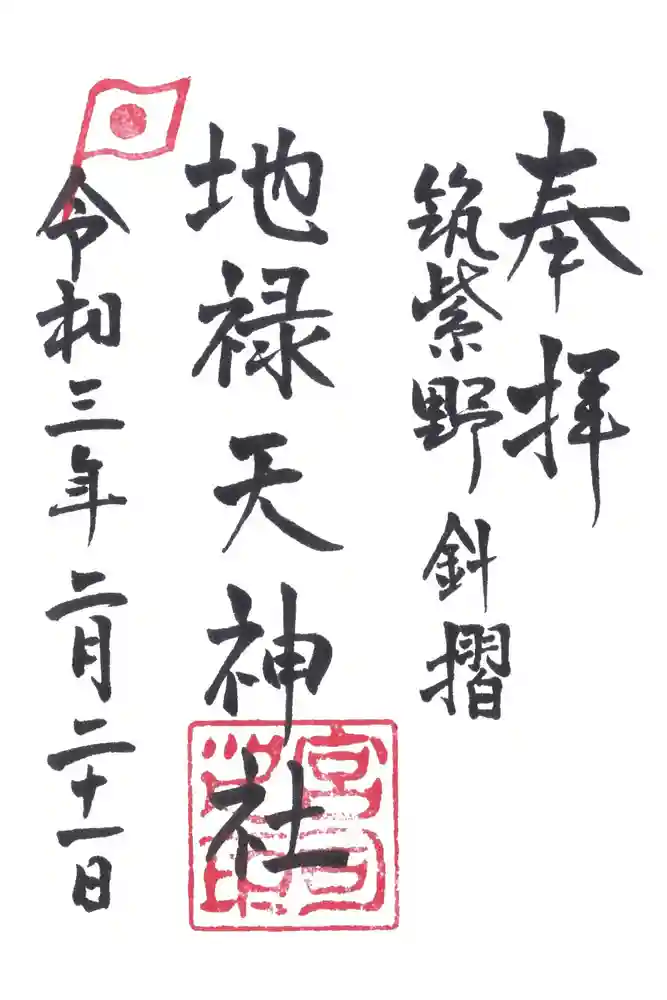 奉拝
筑紫野 針摺
地禄天神社
宮司之印
令和三年 二月二十一日